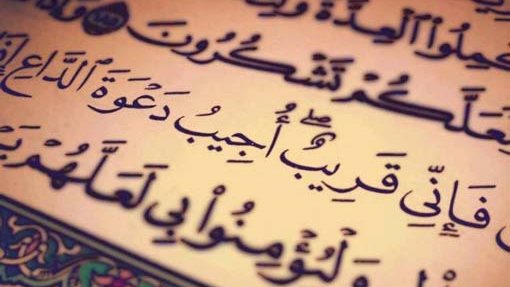 كْمِلُوا۟ ٱلْعِدَّةَ
لَعَلَّكُمْ تَشْكُرُونَ
فَإِنِّي قَرِيبٌ ۖ أُجِيبُ دَعْوَةَ ٱلدَّاعِ إِذَا
وَلْيُؤْمِنُوا۟ بِي لَعَلَّهُمْ